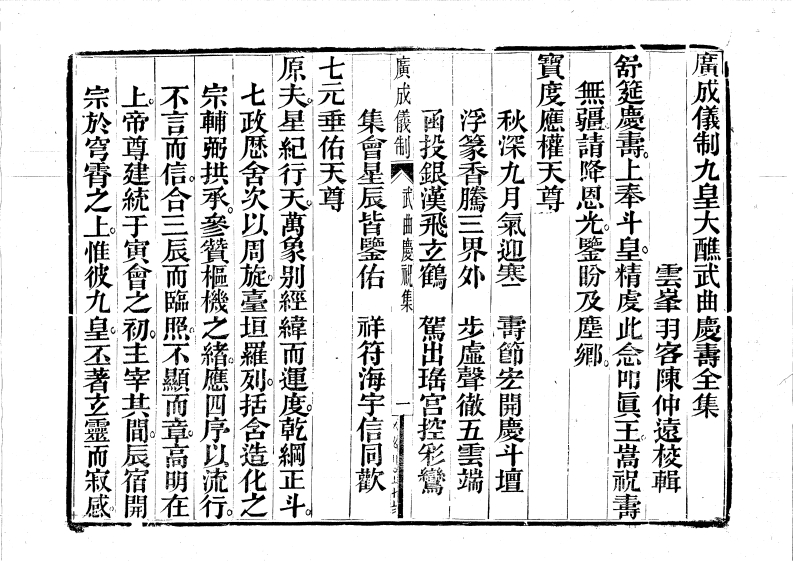 廣成儀制九皇大醮武曲慶壽全集
雲峯羽客陳仲遠校輯
舒筵慶壽。上奉斗皇。精虔此念叩眞王。嵩祝壽
無疆。請降恩光。鑒盼及塵鄉。
寶度應權天尊
秋深九月氣迎寒 壽節宏開慶斗壇
浮篆香騰三界外 步虛聲徹五雲端
函投銀漢飛玄鶴 駕出瑤宮控彩鸞
集會星辰皆鑒佑 祥符海宇信同歡
廣成儀制 武曲慶祝集 一
七元垂佑天尊
原夫。星紀行天。萬象别經緯而運度。乾綱正斗。
七政歷舍次以周旋。臺垣羅列。括含造化之
宗。輔弼拱承。參贊樞機之緒。應四序以流行。
不言而信。合三辰而臨照。不顯而章。高明在
上。帝尊建統于寅會之初。主宰其間。辰宿開
宗於穹霄之上。惟彼九皇。丕著玄靈而寂感。